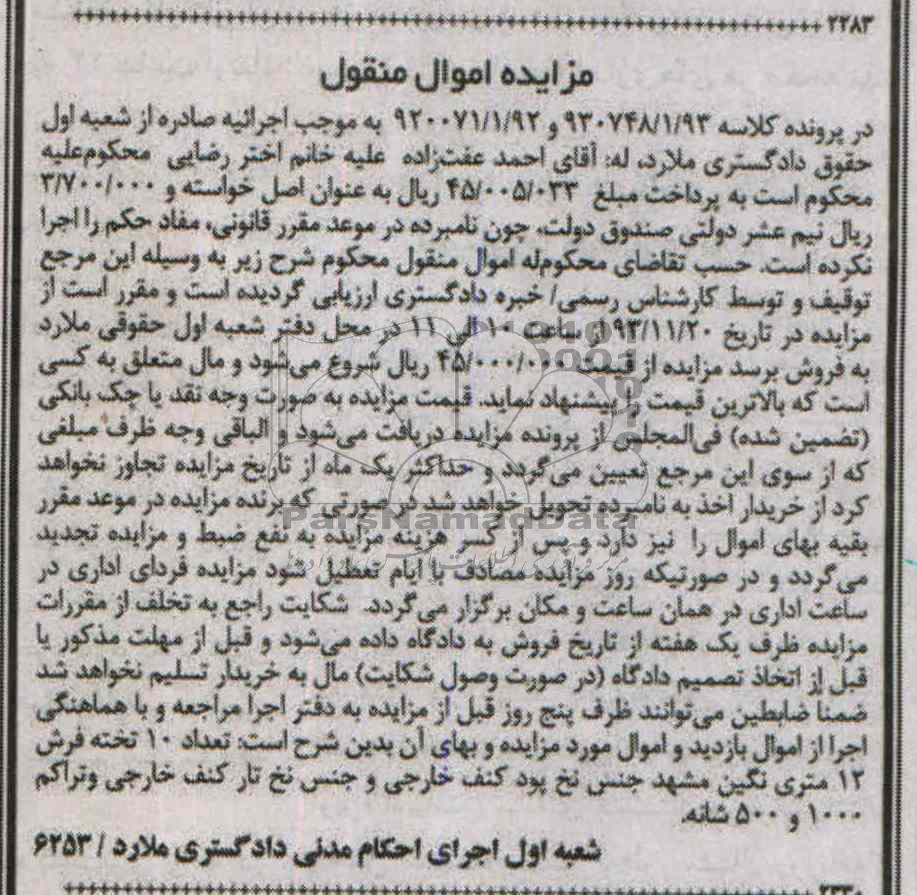 ۲۲۸۳
مزایده اموال منقول
در پرونده کلاسه ۹۳۰۷۴۸/۱/۹۳ و ۹۲۰۰۷۱/۱/۹۲ به موجب اجرائیه صادره از شعبه اول
حقوق دادگستری ملارد، له: آقای احمد عفت‌زاده علیه خانم اختر رضایی محکوم‌علیه
محکوم است به پرداخت مبلغ ۴۵/۰۰۵/۰۳۳ ریال به عنوان اصل خواسته و ۳/۷۰۰/۰۰۰
ریال نیم عشر دولتی صندوق دولت، چون نامبرده در موعد مقرر قانونی، مفاد حکم را اجرا
نکرده است. حسب تقاضای محکوم‌له اموال منقول محکوم شرح زیر به وسیله این مرجع
توقیف و توسط کارشناس رسمی/ خبره دادگستری ارزیابی گردیده است و مقرر است از
مزایده در تاریخ ۹۳/۱۱/۲۰ از ساعت ۱۰ الی ۱۱ در محل دفتر شعبه اول حقوقی ملارد
به فروش برسد مزایده از قیمت ۴۵/۰۰۰/۰۰۰ ریال شروع می‌شود و مال متعلق به کسی
است که بالاترین قیمت را پیشنهاد نماید. قیمت مزایده به صورت وجه نقد یا چک بانکی
(تضمین شده) فی‌المجلس از پرونده مزایده دریافت می‌شود و الباقی وجه ظرف مبلغی
که از سوی این مرجع تعیین می‌گردد و حداکثر یک ماه از تاریخ مزایده تجاوز نخواهد
کرد از خریدار اخذ به نامبرده تحویل خواهد شد در صورتی که برنده مزایده در موعد مقرر
بقیه بهای اموال را نیز دارد و پس از کسر هزینه مزایده به نفع ضبط و مزایده تجدید
می‌گردد و در صورتیکه روز مزایده مصادف با ایام تعطیل شود مزایده فردای اداری در
ساعت اداری در همان ساعت و مکان برگزار می‌گردد. شکایت راجع به تخلف از مقررات
مزایده ظرف یک هفته از تاریخ فروش به دادگاه داده می‌شود و قبل از مهلت مذکور یا
قبل از اتخاذ تصمیم دادگاه (در صورت وصول شکایت) مال به خریدار تسلیم نخواهد شد
ضمنا ضابطین می‌توانند ظرف پنج روز قبل از مزایده به دفتر اجرا مراجعه و با هماهنگی
اجرا از اموال بازدید و اموال مورد مزایده و بهای آن بدین شرح است: تعداد ۱۰ تخته فرش
۱۲ متری نگین مشهد جنس نخ پود کنف خارجی و جنس نخ تار کنف خارجی وتراکم
۱۰۰۰ و ۵۰۰ شانه.
شعبه اول اجرای احکام مدنی دادگستری ملارد / ۶۲۵۳
ParsNamadData